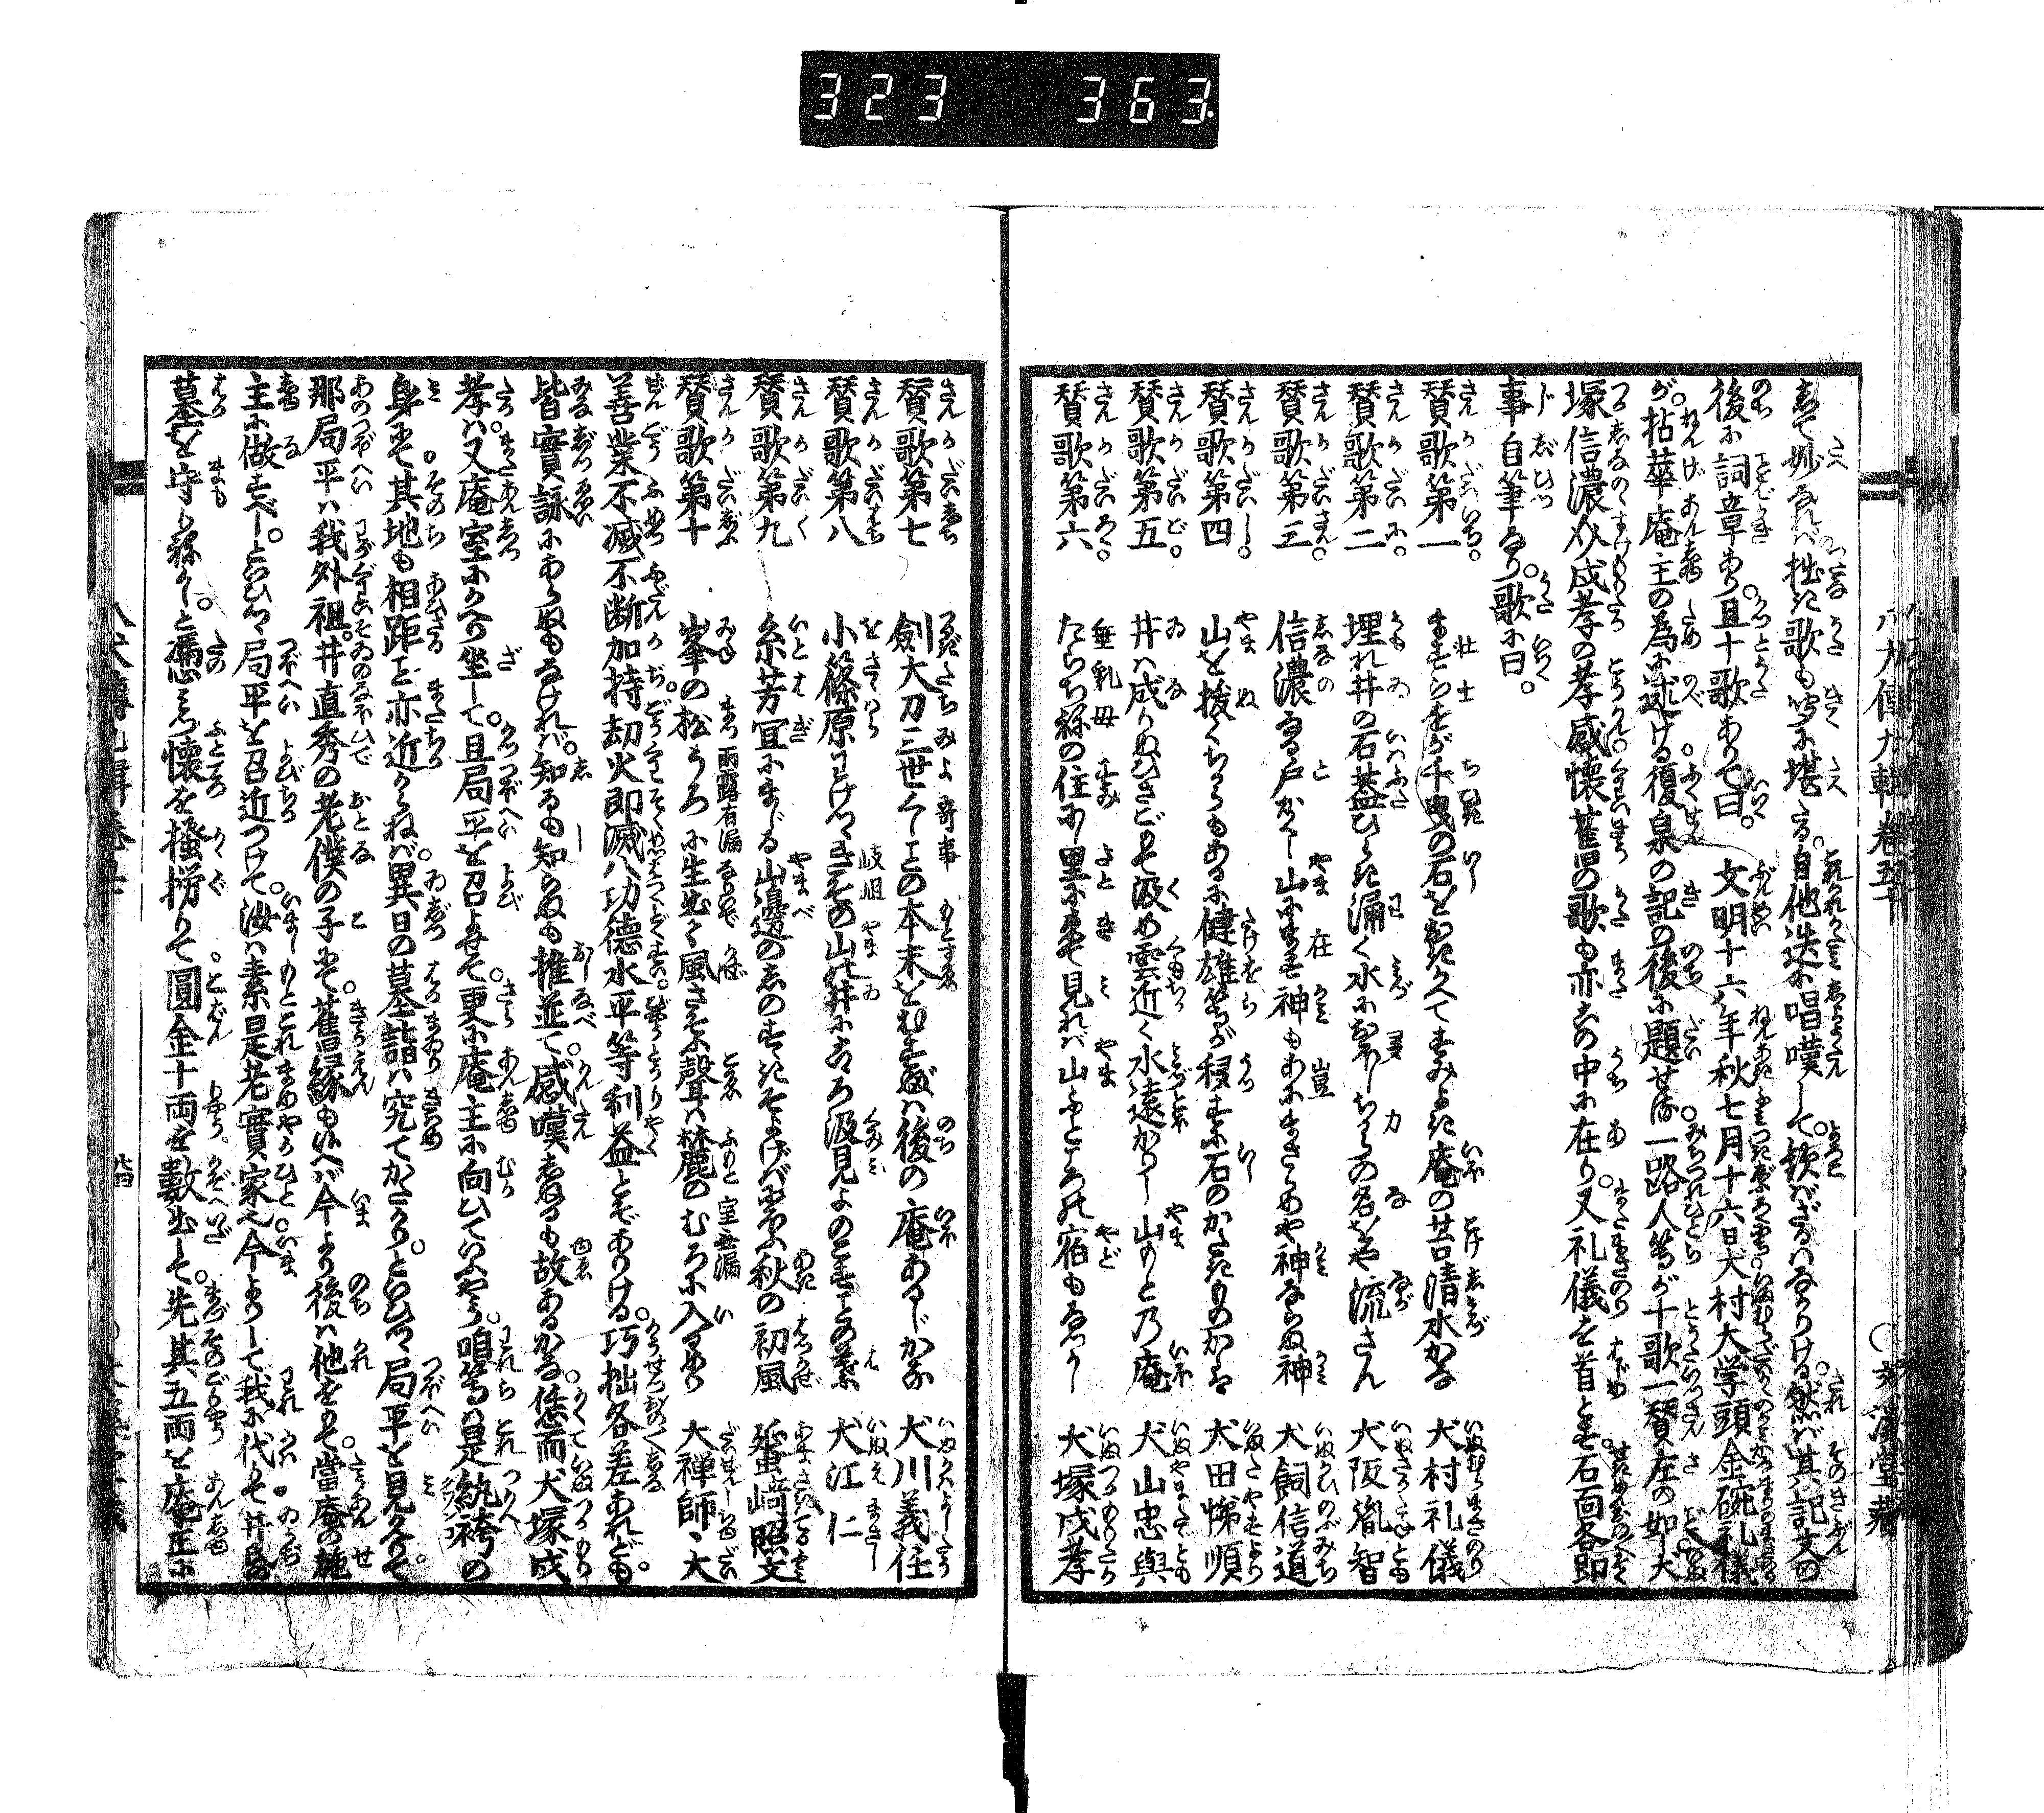 323 363
して妙なれば拙き歌も聞に堪たる。自他迭に唱嘆して。歓ばざるはなかりける。然ば其記文の
後に詞章あり。且十歌ありて曰。文明十六年秋七月十六日犬村大学頭金碗礼儀
が。拈華庵主の為に述ける復泉の記の後に題せる。一路人等が十歌一賛左の如し。犬
塚信濃戍孝の孝感懐舊の歌も亦この中に在り。又礼儀を首とす。石面各即
事自筆なり。歌に曰。
賛歌第一 ますらをが千曳の石をひきかへてすみよき庵の苔清水かな 犬村礼儀
賛歌第二 埋れ井の石蓋ひらき漏く水にをしちからの名をや流さん 犬阪胤智
賛歌第三 信濃なる戸かくし山にます神もあにまさらめや神ならぬ神 犬飼信道
賛歌第四 山を抜くちからもあるに健雄等が移すに石のかたきものかは 犬田悌順
賛歌第五 井は成りぬひさごもて汲め雲近く水遠かりし山もとの庵 犬山忠與
賛歌第六 たらちねの住にし里に来て見れば山ふところの宿もなつかし 犬塚戍孝
賛歌第七 劍大刀三世くしことの本末をむすぶは後の庵あるじかな 犬川義任
賛歌第八 小篠原わけつつきその山の井にこころ汲見よのすことの葉 犬江仁
賛歌第九 糸芳宜にまじる山邊のしのすすきそよげばまねく秋の初風 蜑崎照文
賛歌第十 峯の松うろに生出て風さそふ聲は麓のむろに入るめり 、大禅師、大
善業不滅不断加持。劫火即滅八功德水平等利益とぞありける。巧拙各差あれども。
皆實詠にあらぬもなければ。知るも知らぬも推並て。感嘆しぬるも故あるかな。恁而犬塚戍
孝は。又庵室にかへり坐して。且局平を召よせて。更に庵主に向ひていふやう。咱等は是紈袴の
身にて其地も相距こと亦近からねば。異日の墓詣は究てかたかり。といひつつ局平を見かへりて。
那局平は我外祖。井直秀の老僕の子にて。舊縁も候へば今より後は他をもて。當庵の施
主に做すべし。といひつつ局平を召近つけて。汝は素是老實家也。今よりして我に代りて井家
墓を守りねかし。と憑みつつ懐を搔撈りて。圓金十両を數出して。先其五両を庵主に
八犬傳九輯卷五十
廿四
文溪堂藏